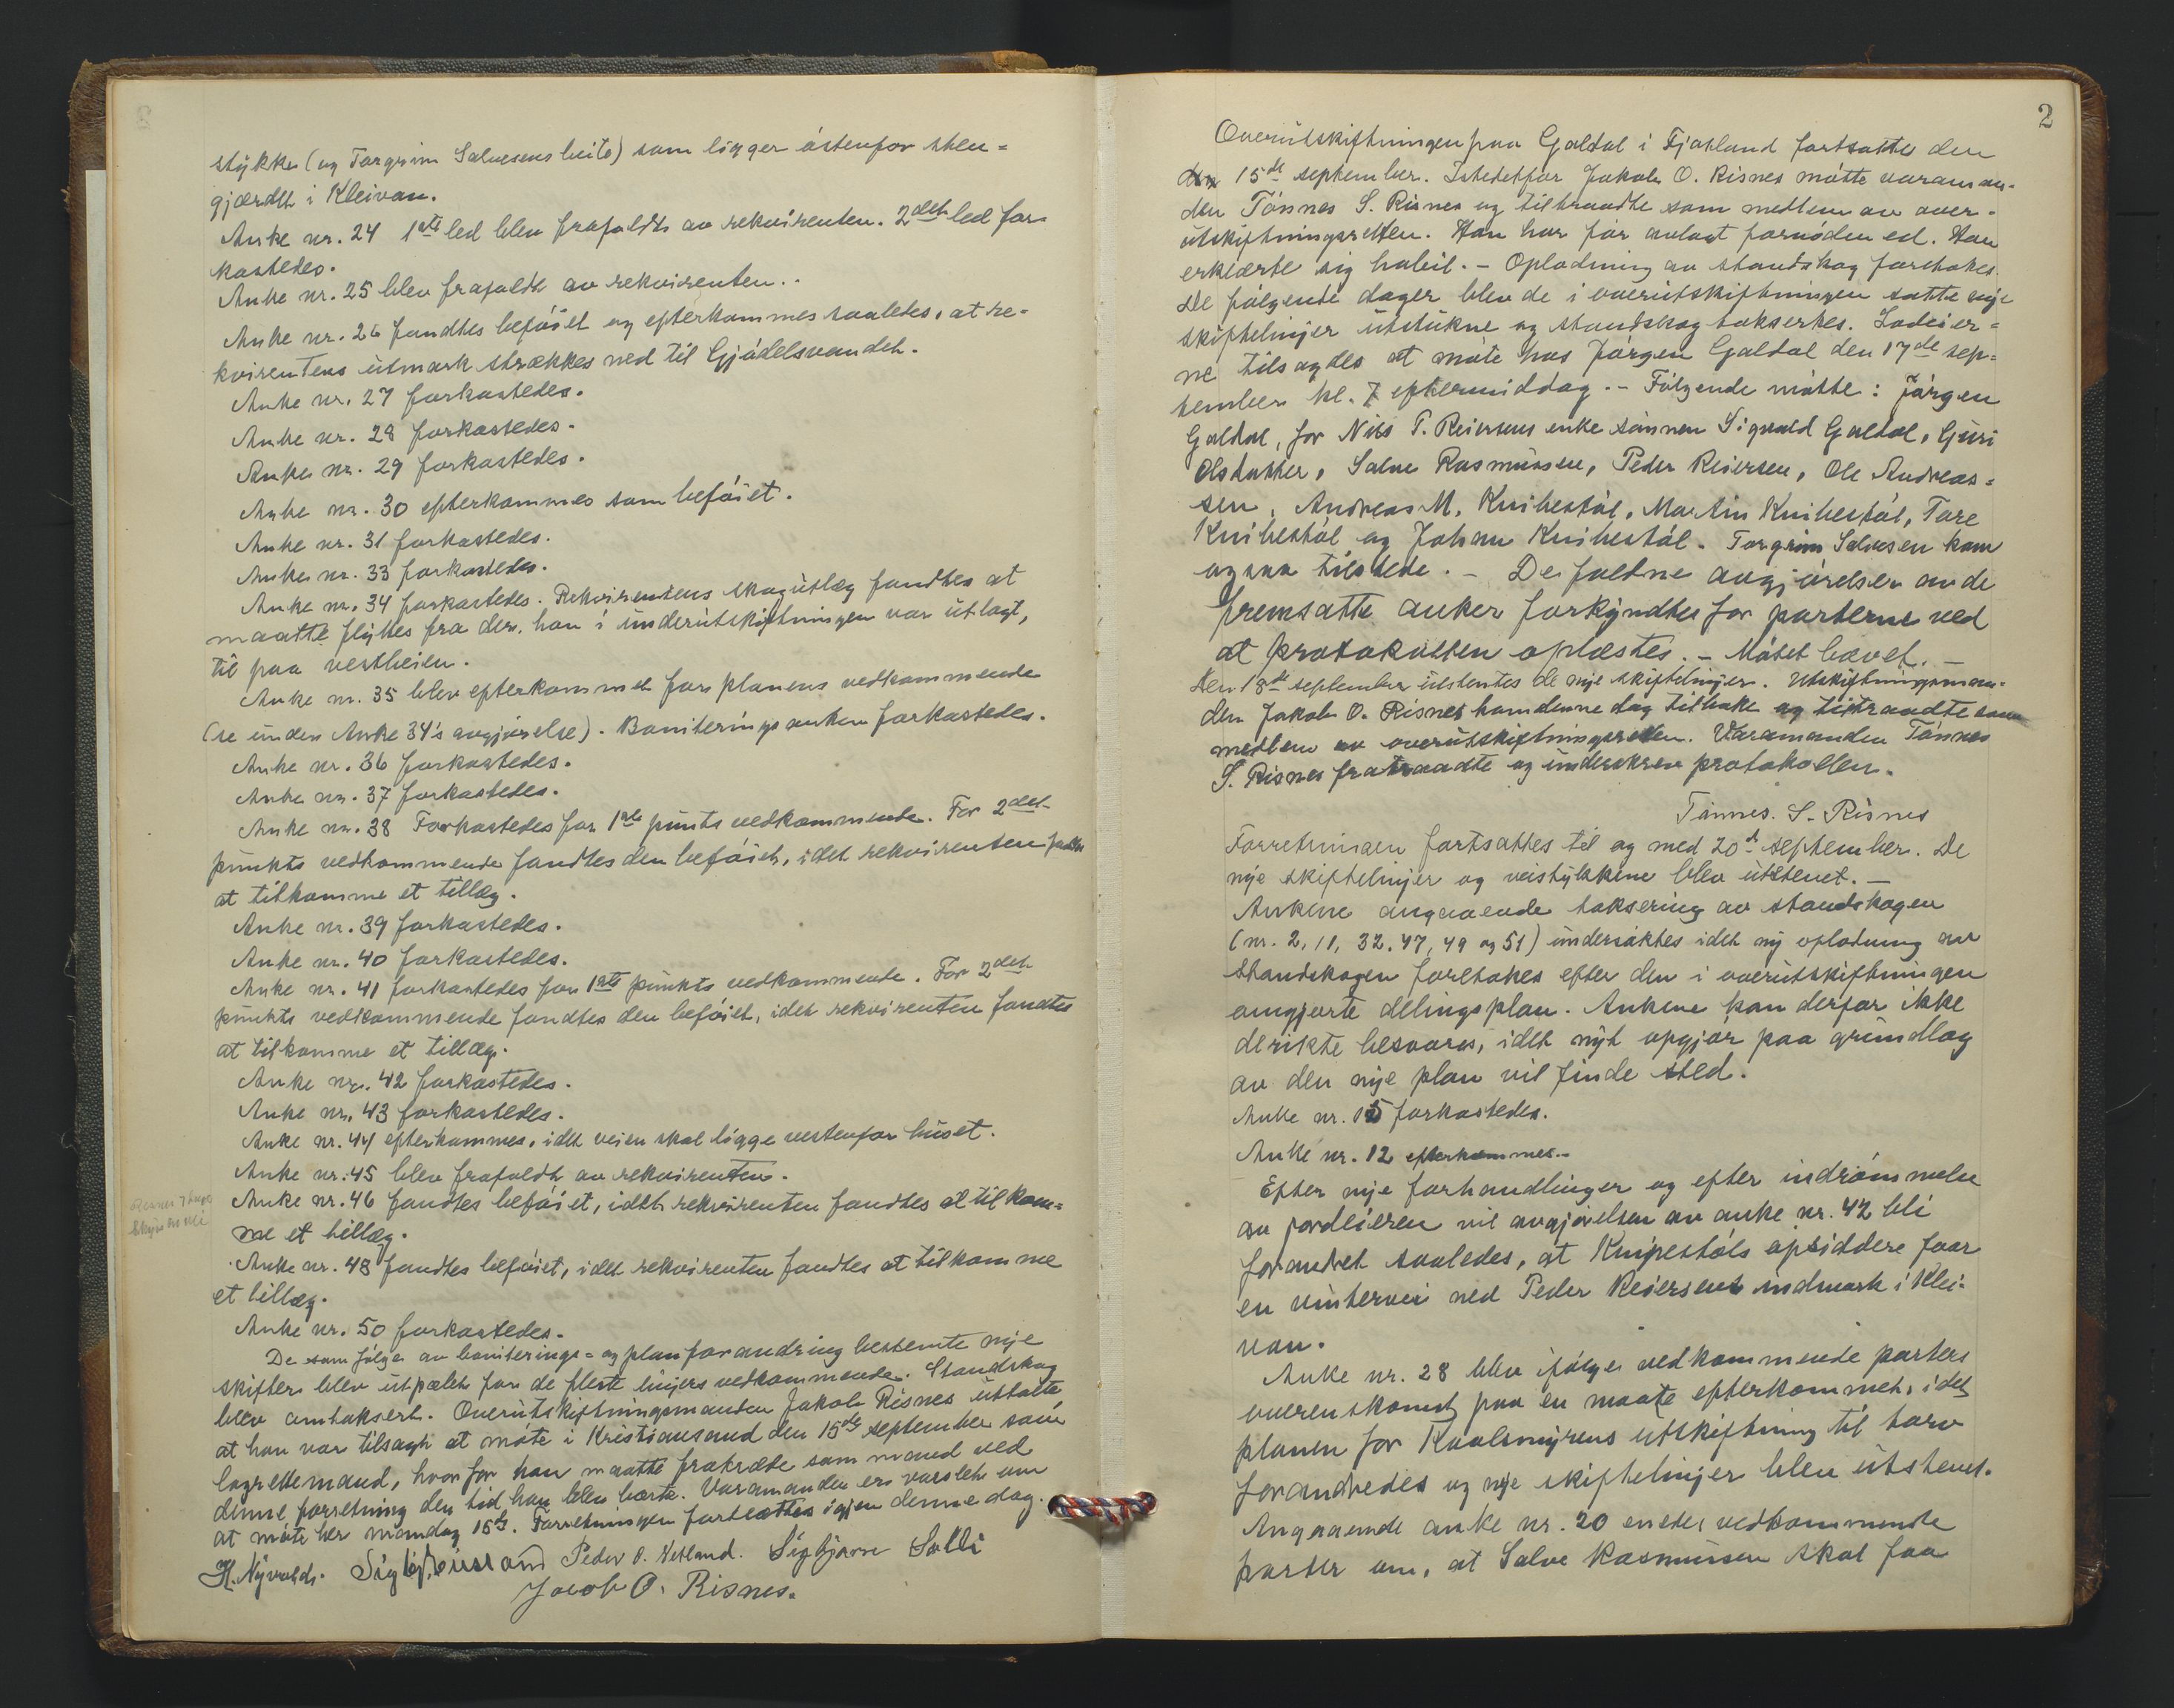 stykke (og Torgrim Salvesens beite) som ligger østenfor sten-
gjærdet i Kleivan.
Anke nr. 24 1ste led blev frafaldt av rekvirenten. 2det led for-
kastedes.
Anke nr. 25 blev frafaldt av rekvirenten..
Anke nr. 26 fandtes beføiet og efterkommes saaledes, at re-
kvirentens utmark strækkes ned til Gjødelsvandet.
Anke nr. 27 forkastedes.
Anke nr. 28 forkastedes.
Anke nr. 29 forkastedes.
Anke nr. 30 efterkommes som beføiet.
Anke nr. 31 forkastedes.
Anke nr. 33 forkastedes.
Anke nr. 34 forkastedes. Rekvirentens skogutlæg fandtes at
maatte flyttes fra der, han i underutskiftningen var utlagt,
til paa vestheien.
Anke nr. 35 blev efterkommet for planens vedkommende
(se under Anke 34's avgjørelse). Boniteringsanken forkastedes.
Anke nr. 36 forkastedes.
Anke nr. 37 forkastedes.
Anke nr. 38 Forkastedes for 1ste punkts vedkommende. For 2det
punkts vedkommende fandtes den beføiet, idet rekvirenten fandtes
at tilkomme et tillæg.
Anke nr. 39 forkastedes.
Anke nr. 40 forkastedes.
Anke nr. 41 forkastedes for 1ste punkts vedkommende. For 2det
punkts vedkommende fandtes den beføiet, idet rekvirenten fandtes
at tilkomme et tillæg.
Anke nr. 42 forkastedes.
Anke nr. 43 forkastedes.
Anke nr. 44 efterkommes, idet veien skal ligge vestenfor huset.
Anke nr. 45 blev frafaldt av rekvirenten.
Anke nr. 46 fandtes beføiet, idet rekvirenten fandtes at tilkom-
me et tillæg.
Anke nr. 48 fandtes beføiet, idet rekvirenten fandtes at tilkomme
et tillæg.
Anke nr. 50 forkastedes.
De som følge av boniterings- og planforandring bestemte nye
skifter blev utpælet for de fleste linjers vedkommende. Standskog
blev omtaksert. Overutskiftningsmanden Jakob Risnes uttalte
at han var tilsagt at møte i Kristiansand den 15de september som
lagrettemand, hvorfor han maatte fratræde som mand ved
denne forretning den tid han blev borte. Varamanden er varslet om
at møte her mandag 15de. Forretningen fortsættes igjen denne dag.
H. Nyvoldt. Peder O. Hetland. Sigbjørn Solli
Jacob O. Risnes.
2
Overutskiftningen paa Galdal i Fjotland fortsattes den
15de september. Istedetfor Jakob O. Risnes møtte varaman-
den Tønnes S. Risnes og tiltraadte som medlem av over-
utskiftningsretten. Han har før avlagt fornøden ed. Han
erklærte sig habil. - Oplodning av standskog foretokes.
De følgende dager blev de i overutskiftningen satte nye
skiftelinjer utstukne og standskog taksertes. Lodeier-
ne tilsagdes at møte hos Jørgen Galdal den 17de sep-
tember kl. 7 eftermiddag. - Følgende møtte: Jørgen
Galdal, for Nils T. Reiersens enke sønnen Sigvald Galdal, Guri
Olsdatter, Salve Rasmussen, Peder Reiersen, Ole Andreas-
sen, Andreas M. Knibestøl, Martin Knibestøl, Tore
Knibestøl og Johan Knibestøl. Torgrim Salvesen kom
ogsaa tilstede. - De faldne avgjørelser av de
fremsatte anker forkyndtes for parterne ved
at protokollen oplæstes. - Møtet hævet. -
Den 18de september utstentes de nye skiftelinjer. Utskiftningsman-
den Jakob O. Risnes kom denne dag tilbake og tiltraadte som
medlem av overutskiftningsretten. Varamanden Tønnes
S. Risnes fratraadte og underskrev protokollen.
Tønnes. S. Risnes
Forretningen fortsattes til og med 20de september. De
nye skiftelinjer og veistykkene blev utstenet. -
Ankene angaaende taksering av standskogen
(nr. 2, 11, 32, 47, 49 og 51) undersøktes idet ny oplodning av
standskogen foretokes efter den i overutskiftningen
omgjorte delingsplan. Ankene kan derfor ikke
derikte besvares, idet nyt opgjør paa grundlag
av den nye plan vil finde sted.
Anke nr. 15 forkastedes.
Anke nr. 12 efterkommes.
Efter nye forhandlinger og efter indrømmelse
av jordeieren vil avgjørelsen av anke nr. 42 bli
forandret saaledes, at Knipestøls opsiddere faar
en vintervei ned Peder Reiersens indmark i Klei-
van.
Anke nr. 28 blev ifølge vedkommende parters
overenskomst paa en maate efterkommet, idet
planen for Kaalemyrens utskiftning til torv
forandredes og nye skiftelinjer blev utstenet.
Angaaende anke nr. 20 enedes vedkommende
parter om, at Salve Rasmussen skal faa